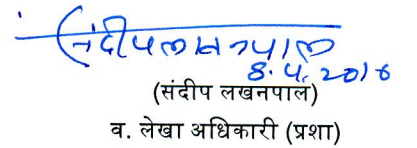 संदीप लखनपाल
8.4.2016
(संदीप लखनपाल)
व. लेखा अधिकारी (प्रशा)